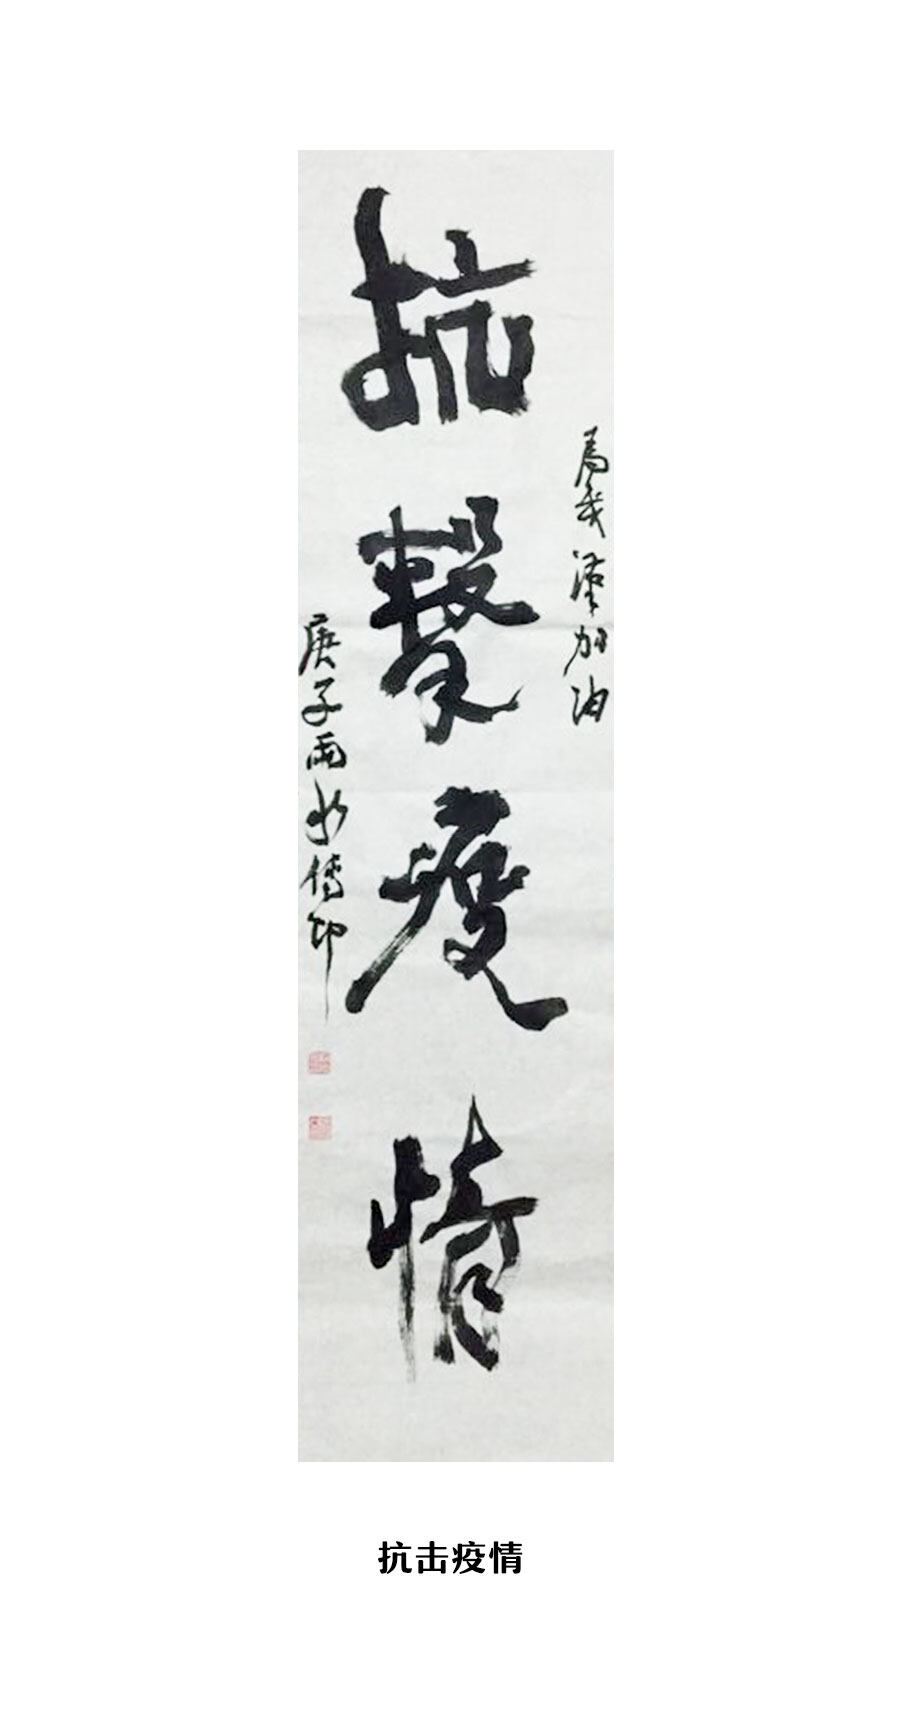 為武漢加油
抗擊疫情
庚子雨水傳印
抗击疫情